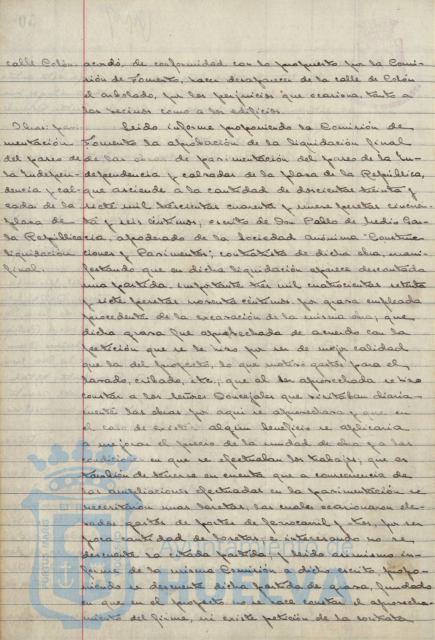 calle Colón. acordó, de conformidad con lo propuesto por la Comi-
sión de Fomento, hacer desaparecer de la calle de Colón
el arbolado, por los perjuicios que ocasiona, tanto a
los vecinos como a los edificios.
Obras: pavi- Leido informe proponiendo la Comisión de
mentación Fomento la aprobación de la liquidación final
del paseo de de las obras de pavimentación del paseo de la In-
la Indepen- dependencia y calzadas de la plaza de la República,
dencia y cal- que asciende a la cantidad de doscientas treinta y
zada de la siete mil trescientas cuarenta y nueve pesetas cincuen-
plaza de ta y seis céntimos, escrito de Don Pablo de
la República cia, apoderado de la Sociedad anónima "Construc-
liquidación ciones y Pavimentos", contratista de dicha obra, mani-
final. festando que en dicha liquidación aparece descontada
una partida, importante tres mil cuatrocientas setenta
y siete pesetas noventa céntimos, por grava empleada
procedente de la excavación de la misma obra; que
dicha grava fue aprovechada de acuerdo con la
petición que se le hizo por ser de mejor calidad
que la del proyecto, lo que motivó gastos para el
lavado, cribado, etc., que al ser aprovechada se hizo
constar a los señores Concejales que visitaban diaria-
mente las obras por si se aprovechara y que en
el caso de existir algún beneficio se aplicaria
a mejorar el precio de la unidad de obra
condiciones en que se efectuaban los trabajos; que es
también de tenerse en cuenta que a consecuencia de
las ampliaciones efectuadas en la pavimentación se
necesitaron mas losetas, las cuales ocasionaron ele-
vados gastos de portes de ferrocarril y por ser
poca cantidad de losetas e interesando no se
descuente la citada partida, y leido asimismo in-
forme de la misma Comisión a dicho escrito, propo-
niendo se descuente dicha partida de grava, fundado
en que en el proyecto no se hace constar el aprovecha-
miento del firme, ni existe petición de la contrata
Ayuntamiento de
HUELVA